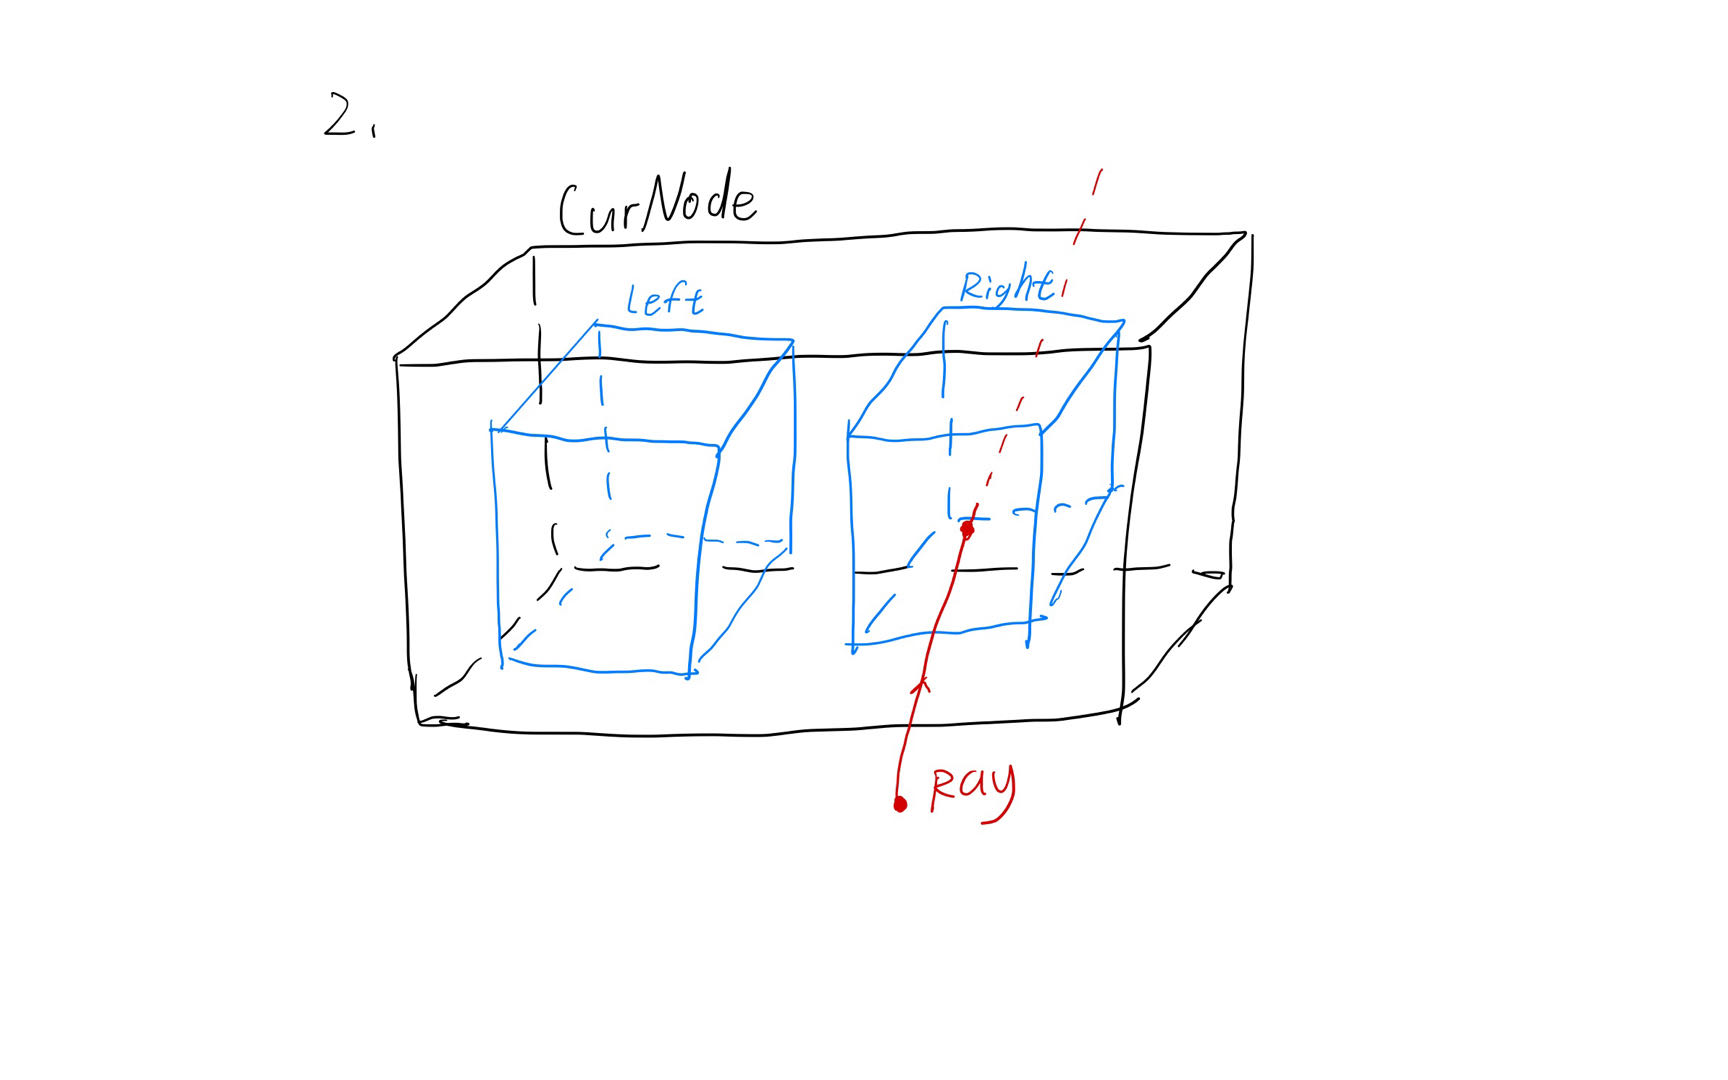 2.
CurNode
Left
Right
Ray